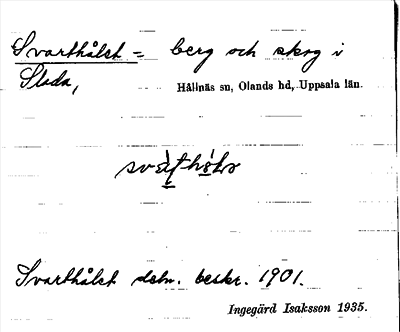 Svarthålet = berg och skog i
Slada,
Hållnäs sn, Olands hd, Uppsala län.
Svarthålet dsbn. beskr. 1901.
Ingegärd Isaksson 1935.